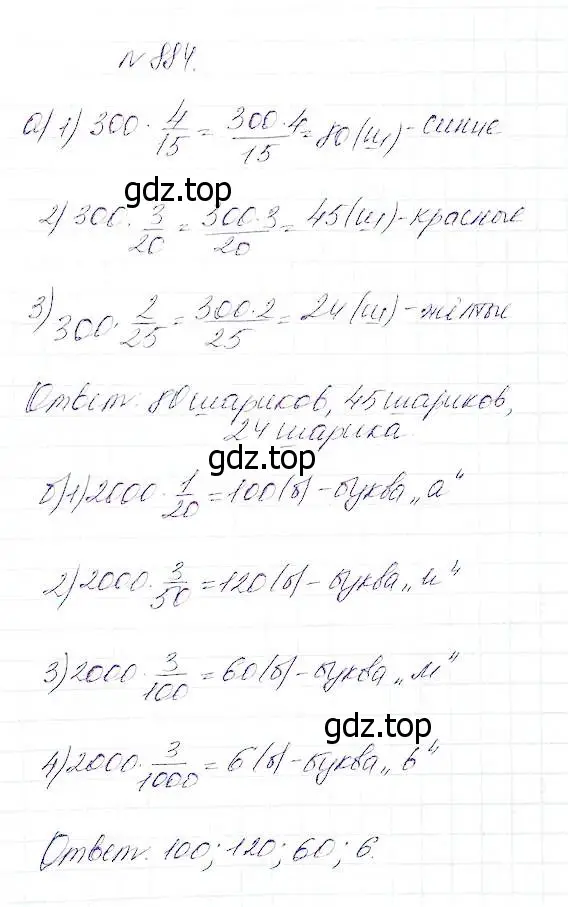 N 884.
а) 1) 300 · 4/15 = 300·4/15 = 80 (ш) - синие
gdz.top
2) 300 · 3/20 = 300·3/20 = 45 (ш) - красные
3) 300 · 2/25 = 300·2/25 = 24 (ш) - жёлтые
Ответ: 80 шариков, 45 шариков,
24 шарика.
gdz.top
б) 1) 2000 · 1/20 = 100 (б) - буква „а"
2) 2000 · 3/50 = 120 (б) - буква „и"
3) 2000 · 3/100 = 60 (б) - буква „м"
gdz.top
4) 2000 · 3/1000 = 6 (б) - буква „ь"
Ответ: 100; 120; 60; 6.